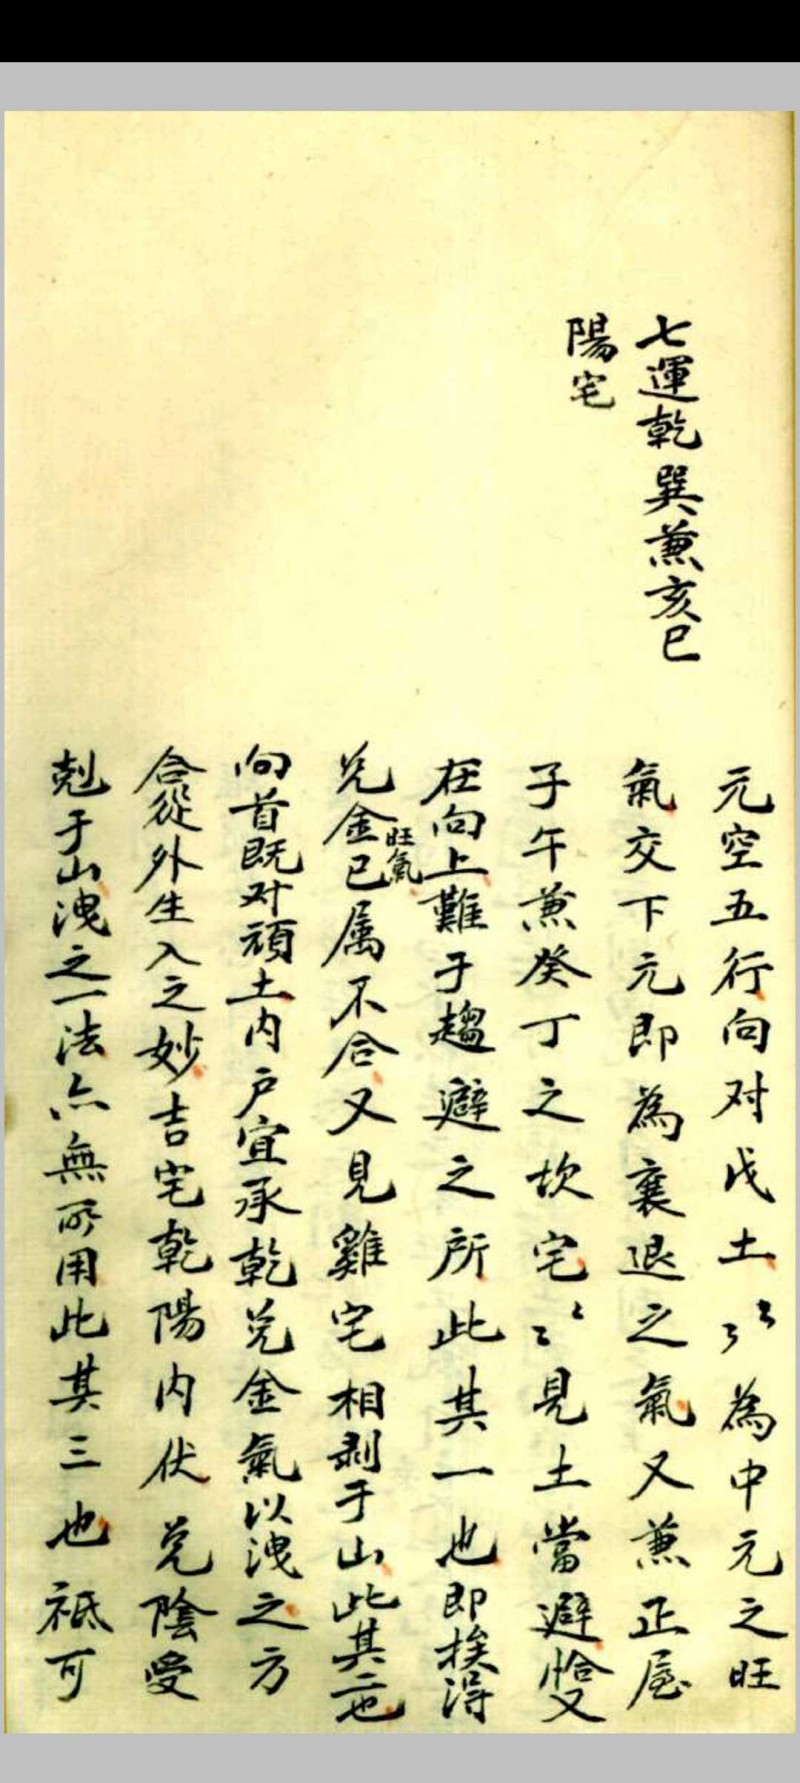 七運乾巽蒹亥巳
陽宅
元空五行向对戊土〻〻為中元之旺
氣交下元即為衰退之氣又蒹正屋
子午蒹癸丁之坎宅〻〻見土當避恰又
在向上難于趨避之所此其一也即挨得
兌金旺氣已属不合又見雞宅相剥于山此其二也
向首既对頑土内户宜承乾兌金氣以洩之方
合從外生入之妙吉宅乾陽内伏兌陰受
剋于山洩之一法亦無所用此其三也祗可